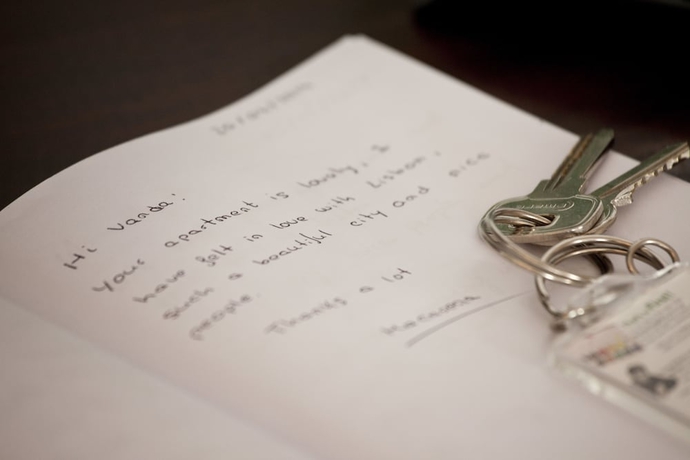 Hi Vanda!
Your apartment is lovely, I
have felt in love with Lisbon,
such a beautiful city and nice
people.
Thanks a lot